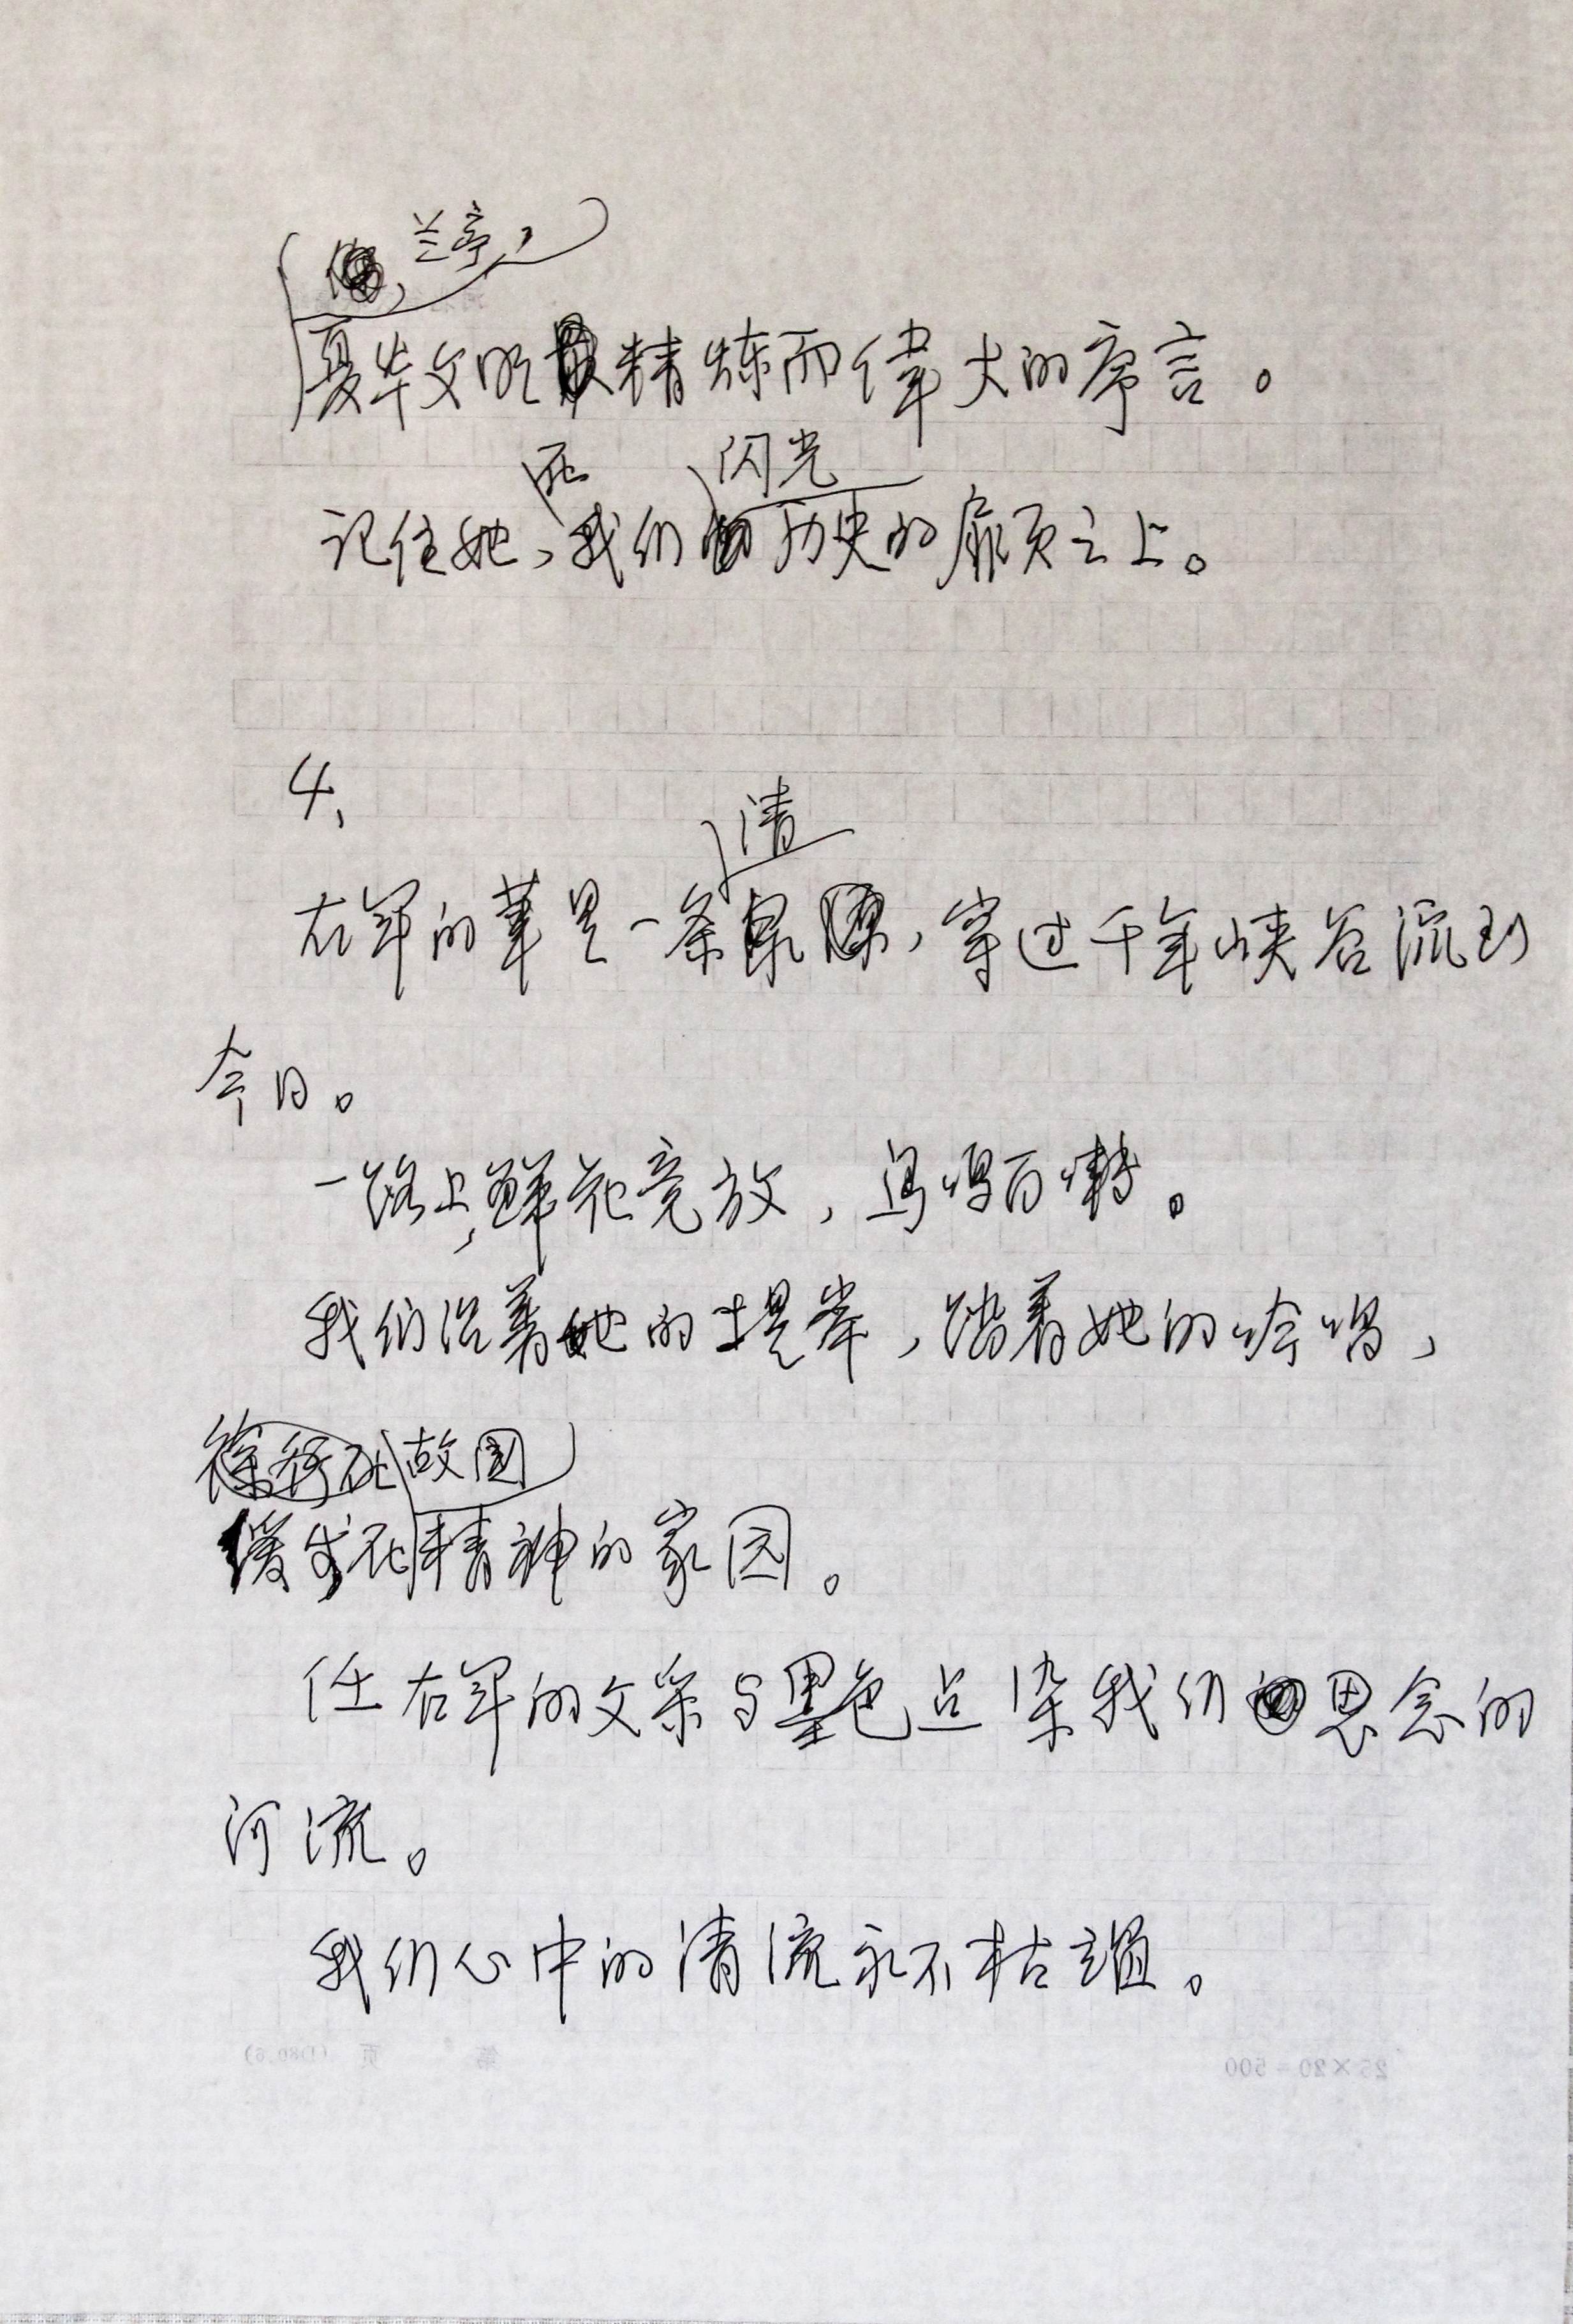 兰亭，
夏华文明精炼而偉大的序言。
记住她，我们闪光历史的扉页之上。
4、
右军的筆是一条清泉，穿过千年峡谷流到
今日。
一路上，鲜花竞放，鸟鸣百啭。
我们沿着她的堤岸，踏着她的吟唱，
徐行在故国
缓步在精神的家园。
任右军的文采与墨色点染我们思念的
河流。
我们心中的清流永不枯竭。
第 页 (D80.6)
25×20=500